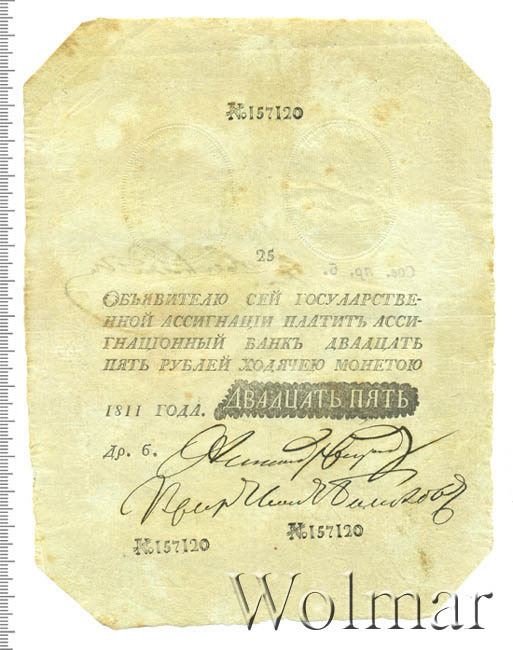 №157120
25
Объявителю сей государстве-
нной ассигнацїи платитъ асси-
гнацїонный банкъ двадцать
пять рублей ходячею монетою
1811 года. ДВАДЦАТЬ ПЯТЬ
Др. б.
№157120 №157120
Wolmar